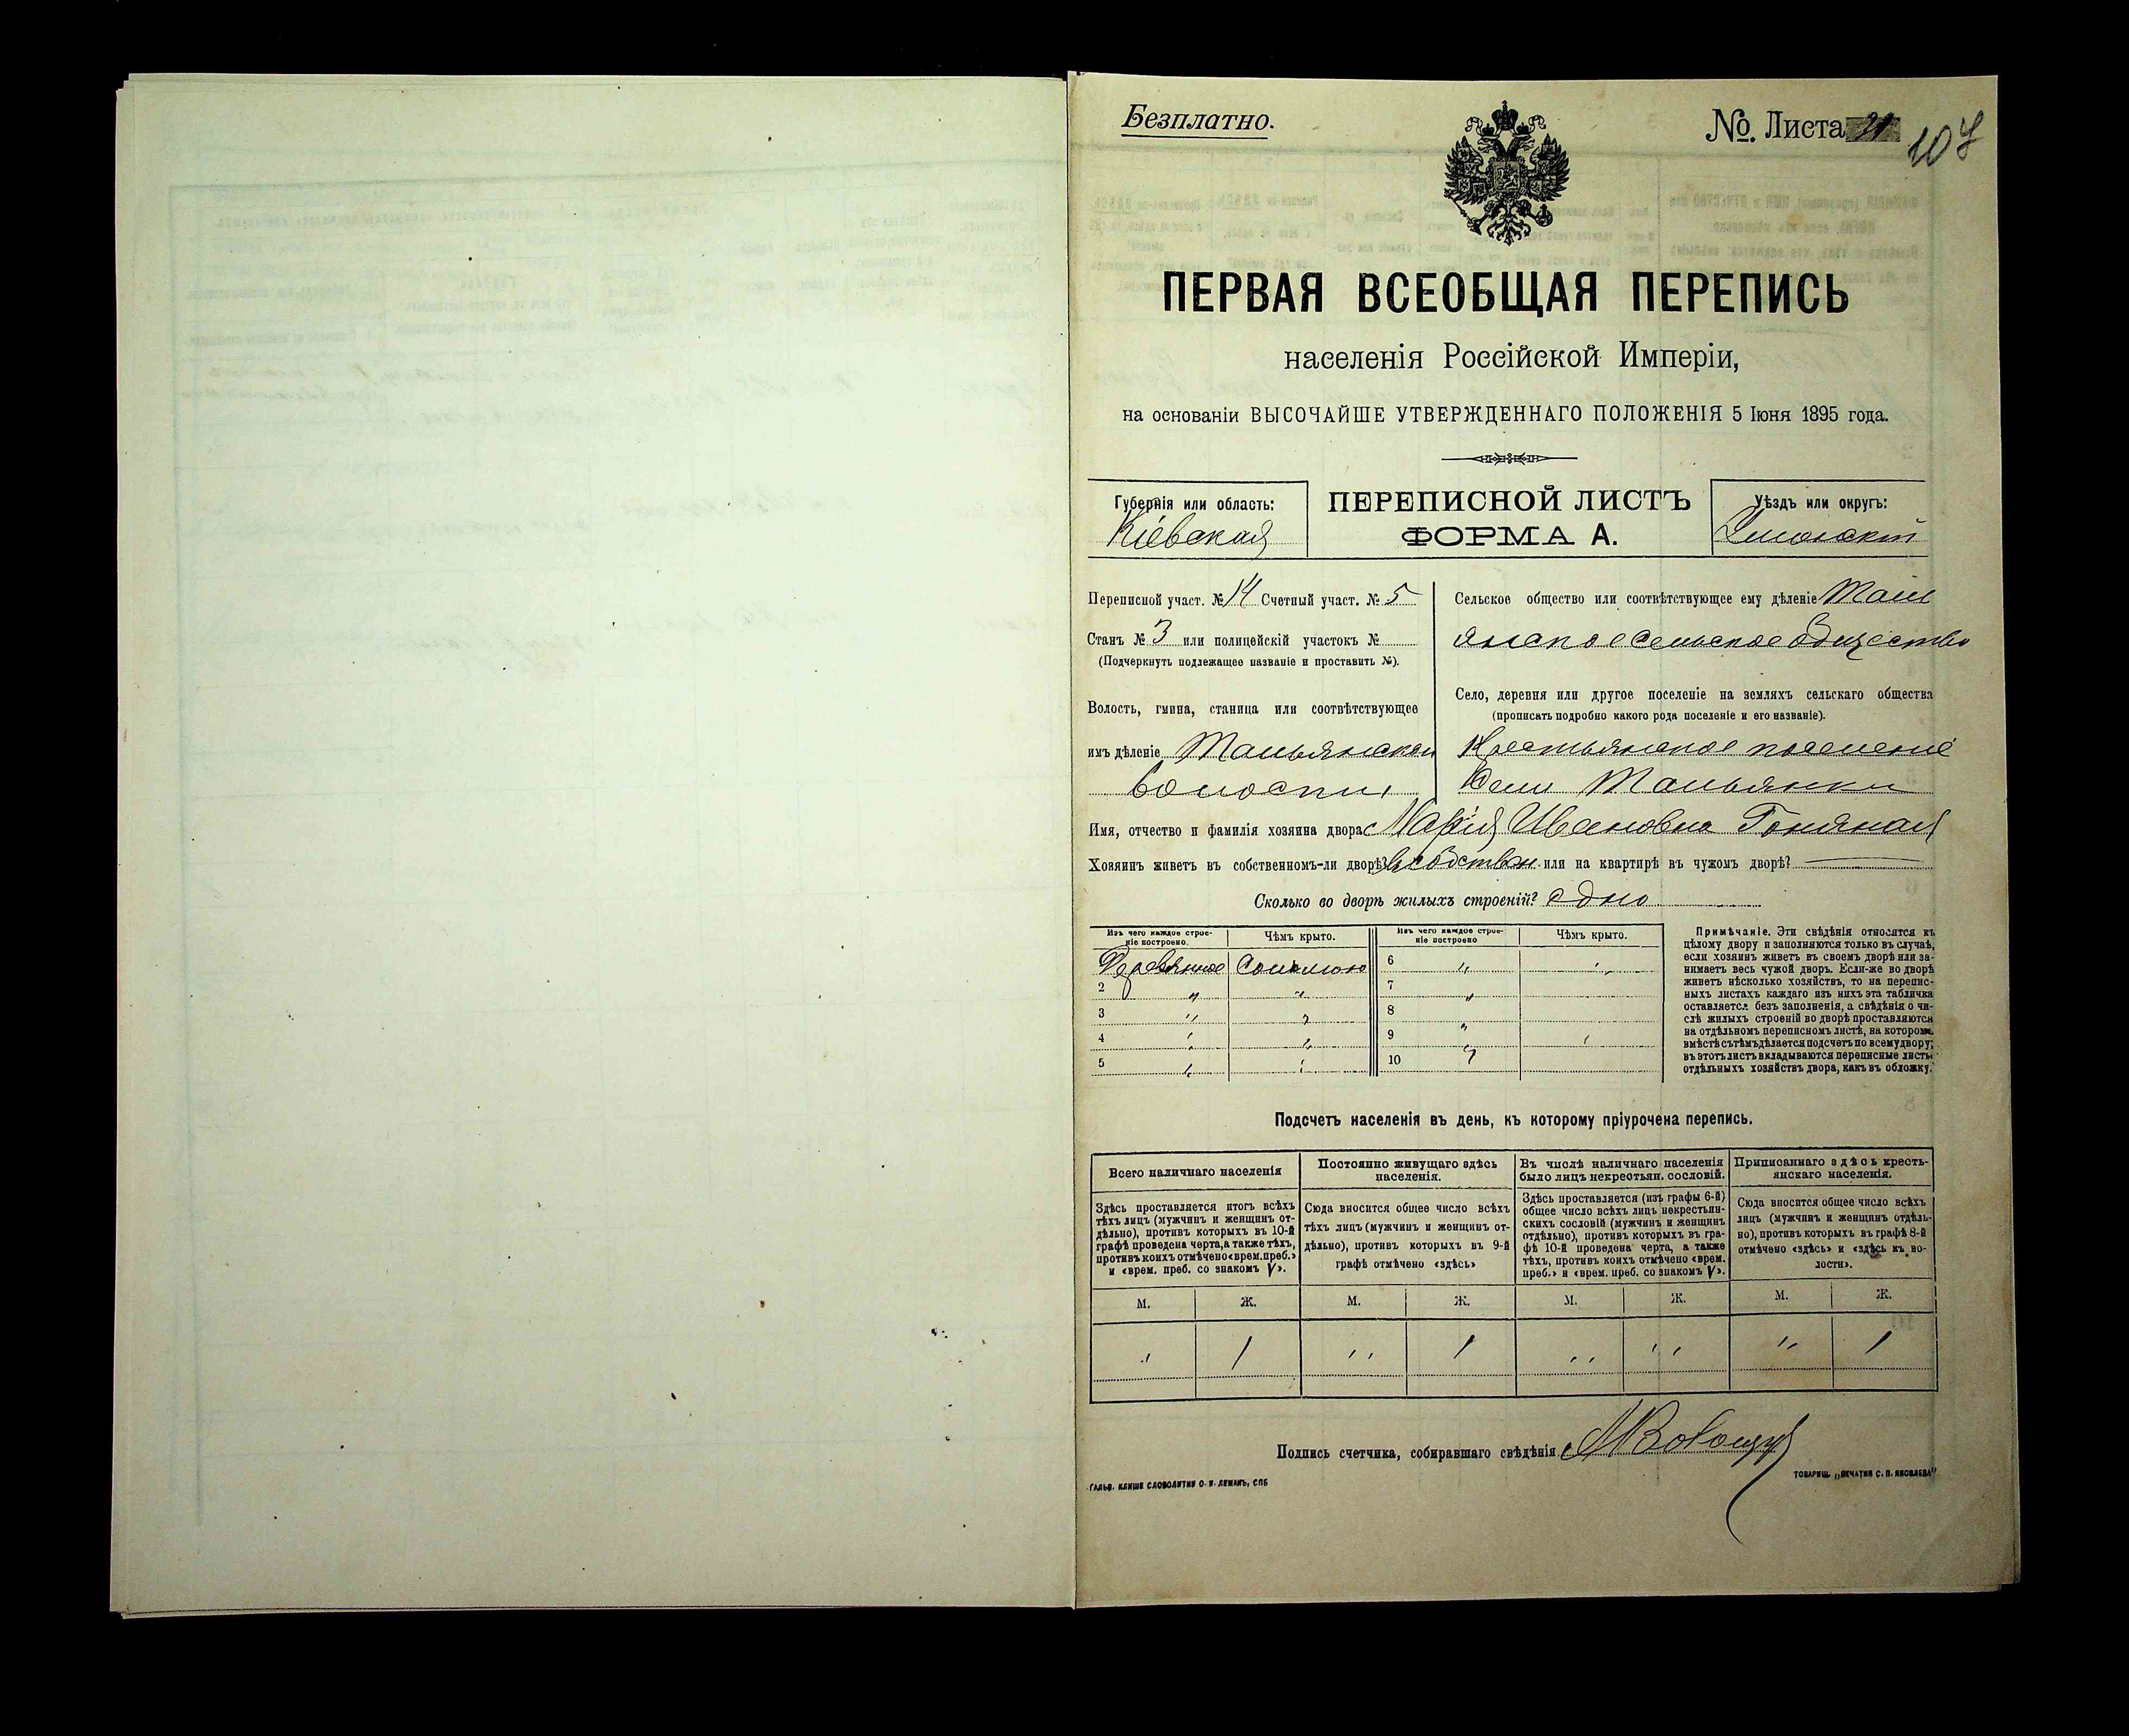 Безплатно.
№. Листа 21
107
ПЕРВАЯ ВСЕОБЩАЯ ПЕРЕПИСЬ
населенія Россійской Имперіи,
на основаніи ВЫСОЧАЙШЕ УТВЕРЖДЕННАГО ПОЛОЖЕНІЯ 5 Іюня 1895 года.
Губернія или область:
Кіевская
ПЕРЕПИСНОЙ ЛИСТЪ
ФОРМА А.
Уѣздъ или округъ:
Уманскій
Переписной участ. № 14 Счетный участ. № 5
Станъ № 3 или полицейскій участокъ №
(Подчеркнуть подлежащее названіе и проставить №).
Волость, гмина, станица или соотвѣтствующее
имъ дѣленіе Тальянской
волости
Сельское общество или соотвѣтствующее ему дѣленіе Таль
янское сельское общество
Село, деревня или другое поселеніе на земляхъ сельскаго общества
(прописать подробно какого рода поселеніе и его названіе).
Крестьянское поселеніе
Села Тальянки
Имя, отчество и фамилія хозяина двора Марія Ивановна
Хозяинъ живетъ въ собственномъ-ли дворѣ? в собствен. или на квартирѣ въ чужомъ дворѣ?
Сколько во дворѣ жилыхъ строеній? одно
Изъ чего каждое строе-
ніе построено.
Чѣмъ крыто.
Изъ чего каждое строе-
ніе построено
Чѣмъ крыто.
Деревянное Соломою 6
2 7
3 8
4 9
5 10
Примѣчаніе. Эти свѣдѣнія относятся къ
цѣлому двору и заполняются только въ случаѣ,
если хозяинъ живетъ въ своемъ дворѣ или за-
нимаетъ весь чужой дворъ. Если-же во дворѣ
живетъ нѣсколько хозяйствъ, то на перепис-
ныхъ листахъ каждаго изъ нихъ эта табличка
оставляется безъ заполненія, а свѣдѣнія о чи-
слѣ жилыхъ строеній во дворѣ проставляются
на отдѣльномъ переписномъ листѣ, на которомъ
вмѣстѣ съ тѣмъ дѣлается подсчетъ по всему двору;
въ этотъ листъ вкладываются переписные листы
отдѣльныхъ хозяйствъ двора, какъ въ обложку.
Подсчетъ населенія въ день, къ которому пріурочена перепись.
Всего наличнаго населенія
Постоянно живущаго здѣсь
населенія.
Въ числѣ наличнаго населенія
было лицъ некрестьян. сословій.
Приписаннаго здѣсь кресть-
янскаго населенія.
Здѣсь проставляется итогъ всѣхъ
тѣхъ лицъ (мужчинъ и женщинъ от-
дѣльно), противъ которыхъ въ 10-й
графѣ проведена черта, а также тѣхъ,
противъ коихъ отмѣчено «врем. преб.»
и «врем. преб. со знакомъ V».
Сюда вносится общее число всѣхъ
тѣхъ лицъ (мужчинъ и женщинъ от-
дѣльно), противъ которыхъ въ 9-й
графѣ отмѣчено «здѣсь»
Здѣсь проставляется (изъ графы 6-й)
общее число всѣхъ лицъ некрестьян-
скихъ сословій (мужчинъ и женщинъ
отдѣльно), противъ которыхъ въ гра-
фѣ 10-й проведена черта, а также
тѣхъ, противъ коихъ отмѣчено «врем.
преб.» и «врем. преб. со знакомъ V».
Сюда вносится общее число всѣхъ
лицъ (мужчинъ и женщинъ отдѣль-
но), противъ которыхъ въ графѣ 8-й
отмѣчено «здѣсь» и «здѣсь къ во-
лости».
М. Ж. М. Ж. М. Ж. М. Ж.
" 1 " 1 " " " 1
Подпись счетчика, собиравшаго свѣдѣнія
ГАЛЬВ. КЛИШЕ СЛОВОЛИТНИ О. И. ЛЕМАНЪ, СПБ
ТОВАРИЩ. „ПЕЧАТНЯ С. П. ЯКОВЛЕВА"